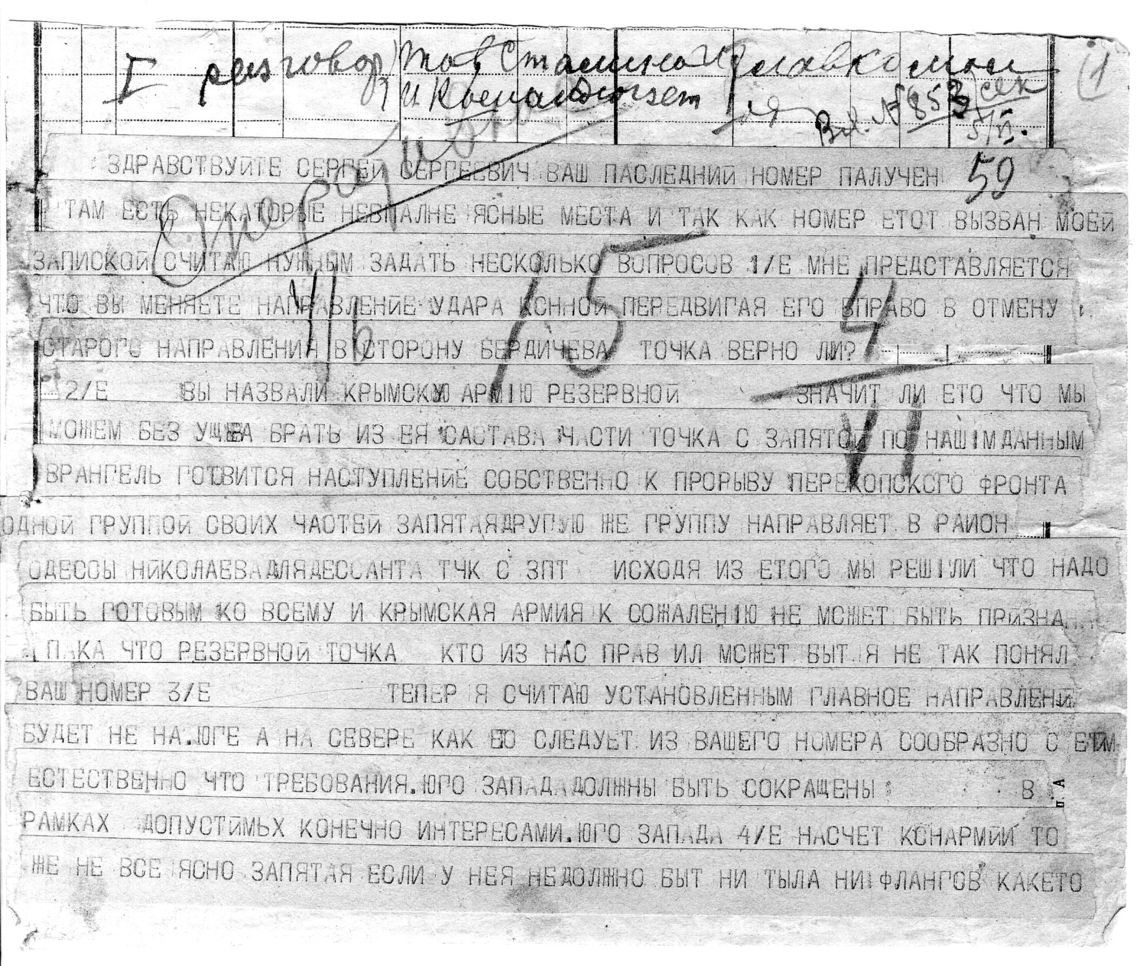 I разговор Тов Сталина и Главкомом
и Квенандюгзет для
Вх. № 853/сек
5/VI.
1
59
Оперативно
ЗДРАВСТВУЙТЕ СЕРГЕЙ СЕРГЕЕВИЧ ВАШ ПАСЛЕДНИЙ НОМЕР ПАЛУЧЕН
ТАМ ЕСТЬ НЕКАТОРЫЕ НЕВПАЛНЕ ЯСНЫЕ МЕСТА И ТАК КАК НОМЕР ЕТОТ ВЫЗВАН МОЕЙ
ЗАПИСКОЙ СЧИТАЮ НУЖНЫМ ЗАДАТЬ НЕСКОЛЬКО ВОПРОСОВ 1/Е МНЕ ПРЕДСТАВЛЯЕТСЯ
ЧТО ВЫ МЕНЯЕТЕ НАПРАВЛЕНИЕ УДАРА КОННОЙ ПЕРЕДВИГАЯ ЕГО ВПРАВО В ОТМЕНУ
СТАРОГО НАПРАВЛЕНИЯ В СТОРОНУ БЕРДИЧЕВА ТОЧКА ВЕРНО ЛИ?
2/Е ВЫ НАЗВАЛИ КРЫМСКУЮ АРМІЮ РЕЗЕРВНОЙ ЗНАЧИТ ЛИ ЕТО ЧТО МЫ
МОЖЕМ БЕЗ УЩЕБА БРАТЬ ИЗ ЕЯ САСТАВА ЧАСТИ ТОЧКА С ЗАПЯТОЙ ПО НАШІМ ДАННЫМ
ВРАНГЕЛЬ ГОТВИТСЯ НАСТУПЛЕНИЕ СОБСТВЕННО К ПРОРЫВУ ПЕРЕКОПСКОГО ФРОНТА
ОДНОЙ ГРУППОЙ СВОИХ ЧАСТЕЙ ЗАПЯТАЯДРУГУЮ ЖЕ ГРУППУ НАПРАВЛЯЕТ В РАЙОН
ОДЕССЫ НИКОЛАЕВАДЛЯДЕССАНТА ТЧК С ЗПТ ИСХОДЯ ИЗ ЕТОГО МЫ РЕШІЛИ ЧТО НАДО
БЫТЬ ГОТОВЫМ КО ВСЕМУ И КРЫМСКАЯ АРМИЯ К СОЖАЛЕНІЮ НЕ МОЖЕТ БЫТЬ ПРИЗНАНА
ПАКА ЧТО РЕЗЕРВНОЙ ТОЧКА КТО ИЗ НАС ПРАВ ИЛ МОЖЕТ БЫТ Я НЕ ТАК ПОНЯЛ
ВАШ НОМЕР 3/Е ТЕПЕР Я СЧИТАЮ УСТАНОВЛЕННЫМ ГЛАВНОЕ НАПРАВЛЕНИЕ
БУДЕТ НЕ НА.ЮГЕ А НА СЕВЕРЕ КАК ЕО СЛЕДУЕТ ИЗ ВАШЕГО НОМЕРА СООБРАЗНО С ЕТИМ
ЕСТЕСТВЕННО ЧТО ТРЕБОВАНИЯ.ЮГО ЗАПАДА ДОЛЖНЫ БЫТЬ СОКРАЩЕНЫ В
РАМКАХ ДОПУСТИМЬХ КОНЕЧНО ИНТЕРЕСАМИ.ЮГО ЗАПАДА 4/Е НАСЧЕТ КОНАРМИИ ТО
ЖЕ НЕ ВСЕ ЯСНО ЗАПЯТАЯ ЕСЛИ У НЕЯ НЕДОЛЖНО БЫТ НИ ТЫЛА НИ ФЛАНГОВ КАКЕТО